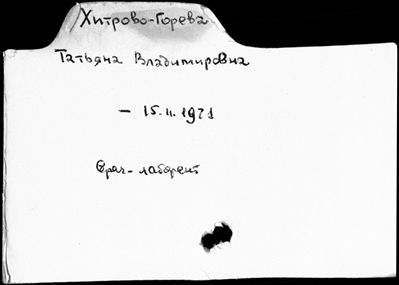 Хитрово-Горева
Татьяна Владимировна
– 15.II.1971
Врач-лаборант